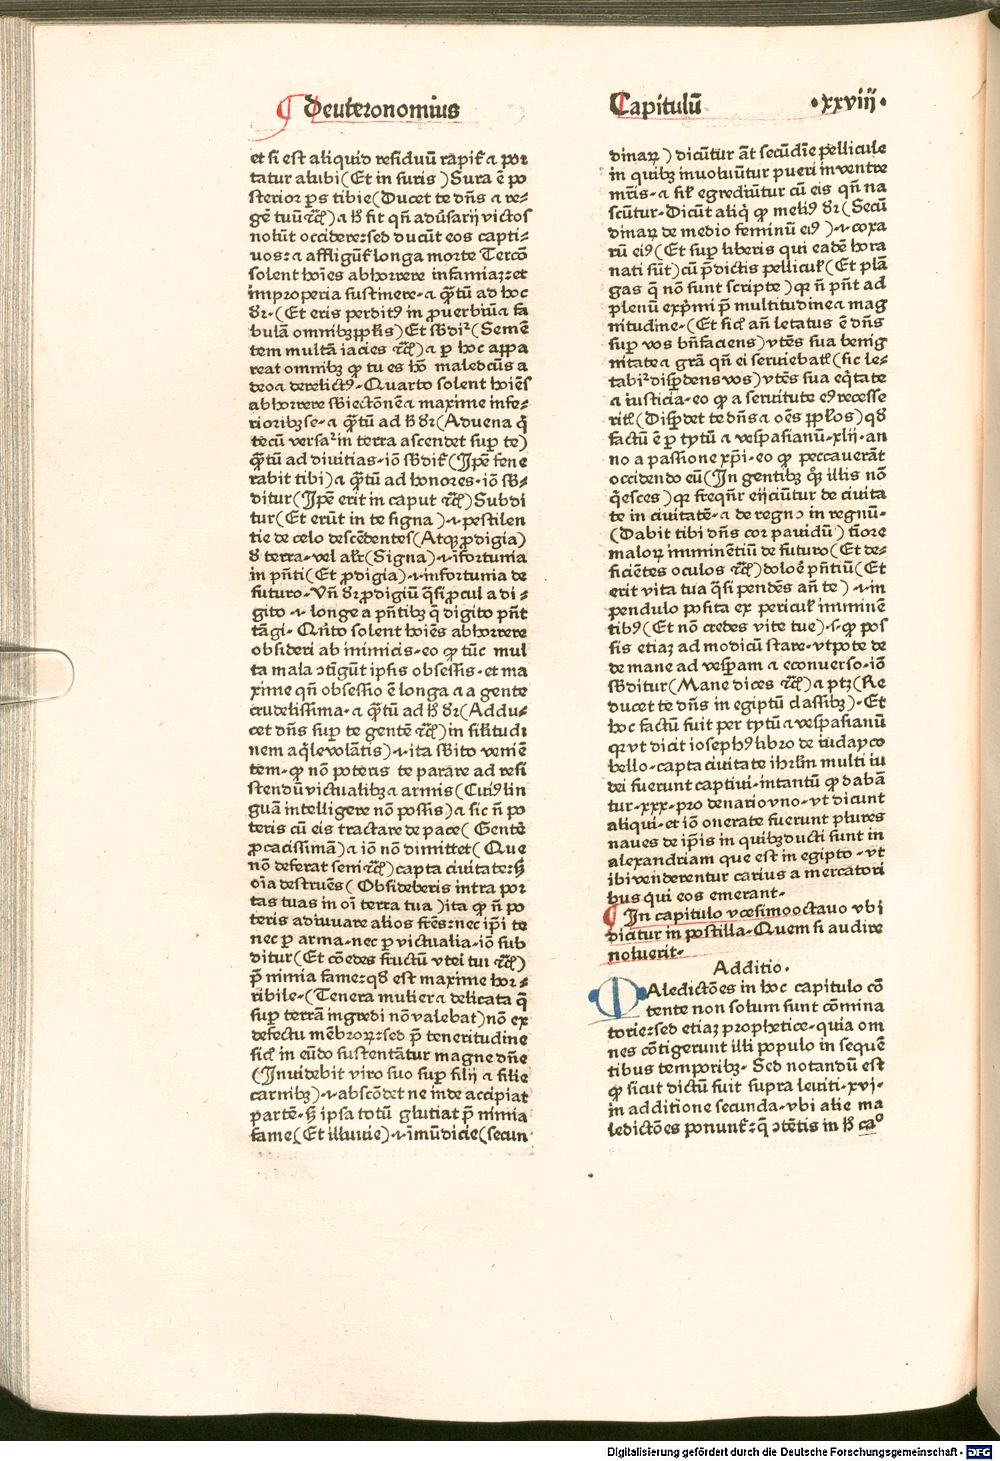 Deuteronomius
Capitulū ·xxviij·
et si est aliquid residuū rapit᷑ ⁊ por
tatur alubi (Et in suris) Sura ē po
sterior ꝑs tibie (Ducet te dn̄s ⁊ re⸗
gē tuū ⁊c̄) ⁊ h̄ fit qn̄ aduersarij victos
nolūt occidere: sed ducūt eos capti⸗
uos: ⁊ affligūt longa morte Tercō
solent hoīes abhorrere infamiaꝫ: et
improperia sustinere · ⁊ qͣꝫtū ad hoc
dr̄ · (Et eris perditꝰ in ꝓuerbiū ⁊ fa
bulā omnibꝫ ppl̄is) Et sb̄dit᷑ (Semē
tem multā iacies ⁊c̄) ⁊ ꝑ hoc appa
reat omnibꝫ ꝙ tu es hō maledcūs a
deo ⁊ derelictꝰ · Quarto solent hoīes
abhorrere sb̄iectōnē ⁊ maxime infe⸗
rioribꝫ se · ⁊ qͣꝫtū ad h̄ dr̄ (Aduena q̄
tecū versat᷑ in terra ascendet suꝑ te)
qͣꝫtū ad diuitias · iō sb̄dit᷑ (Ip̄e fene
rabit tibi) ⁊ qͣꝫtū ad honores · iō sb̄⸗
ditur (Ip̄e erit in caput ⁊c̄) Subdi
tur (Et erūt in te signa) ·i· pestilen
tie de celo descēdentes (Atqꝫ ꝓdigia)
de terra · vel alr̄ (Signa) ·i· īfortunia
in pn̄ti (Et ꝓdigia) ·i· infortunia de
futuro · Vn̄ dr̄ ꝓdigiū qͣsi ꝓcul a di⸗
gito ·i· longe a pn̄tibꝫ q̄ digito pn̄t
tāgi · Qn̄to solent hoīes abhorrere
obsideri ab inimicis · eo ꝙ tūc mul
ta mala ꝯtīgūt ip̄sis obsessis · et ma
xime qn̄ obsessio ē longa ⁊ a gente
crudelissima · ⁊ qͣꝫtū ad h̄ dr̄ (Addu⸗
cet dn̄s suꝑ te gentē ⁊c̄) in sil̄itudi
nem aq̄le volātis) ·i· ita sb̄ito veniē
tem · ꝙ nō poteris te parare ad resi
stendū victualibꝫ ⁊ armis (Cuiꝰ lin
guā intelligere nō possis) ⁊ sic n̄ po
teris cū eis tractare de pace (Gentē
ꝓcacissimā) ⁊ iō nō dimittet (Que
nō deferat seni ⁊c̄) capta ciuitate: sꝫ
oīa destruēs (Obsideberis intra por
tas tuas in oī terra tua) ita ꝙ n̄ po
teris adiuuare alios fr̄es: nec ip̄i te
nec ꝑ arma · nec ꝑ victualia · iō sub
ditur (Et cōedes fructū vteri tui ⁊c̄)
p̄ nimia fame: qd̄ est maxime hor⸗
ribile · (Tenera mulier ⁊ delicata q̄
suꝑ terrā ingredi nō valebat) nō ex
defectu mēbroꝝ: sed p̄ teneritudine
sicl̄ in eūdo sustentātur magne dn̄e
(Inuidebit viro suo suꝑ filij ⁊ filie
carnibꝫ) ·i· abscōdet ne inde accipiat
partē · sꝫ ipsa totū glutiat p̄ nimia
fame (Et illuuie) ·i· īmūdicie (secun
dinaꝝ) dicūtur āt secūdīe pellicule
in quibꝫ inuoluūtur pueri in ventre
mr̄is · ⁊ sil̄ egrediūtur cū eis qn̄ na
scūtur · Dicūt aliq̇ ꝙ meliꝰ dr̄ (Secū
dinaꝝ de medio feminū eiꝰ) ·i· coxa
rū eiꝰ (Et suꝑ liberis qui eadē hora
nati sūt) cū p̄dictis pellicul̄ (Et pla
gas q̄ nō sunt scripte) qꝛ n̄ pn̄t ad
plenū exp̄mi p̄ multitudine ⁊ mag
nitudine · (Et sicl̄ an̄ letatus ē dn̄s
suꝑ vos bn̄faciens) vtēs sua benig
nitate ⁊ grā qn̄ ei seruiebatl̄ (sic le⸗
tabit᷑ disꝑdens vos) vtēs sua eq̇tate
⁊ iusticia · eo ꝙ a seruitute eꝰ recesse
ritl̄ (Disꝑdet te dn̄s ⁊ oēs ppl̄os) qd̄
factū ē ꝑ tytū ⁊ vespasianū · xlij · an
no a passione xp̄i · eo ꝙ peccauerāt
occidendo eū (In gentibꝫ qͦꝫ illis nō
q̇esces) qꝛ freqn̄r eijciūtur de ciuita
te in ciuitatē · ⁊ de regno in regnū ·
(Dabit tibi dn̄s cor pauidū) tīore
maloꝝ imminētiū de futuro (Et de⸗
ficiētes oculos ⁊c̄) dolore pn̄tiū (Et
erit vita tua qͣsi pendēs an̄ te) ·i· in
pendulo posita ex pericul̄ imminē
tibꝰ (Et nō credes vite tue) ·s· ꝙ pos
sis etiaꝫ ad modicū stare · vtpote de
de mane ad vesꝑam ⁊ econuerso · iō
sb̄ditur (Mane dices ⁊c̄) ⁊ ptꝫ (Re
ducet te dn̄s in egiptū classibꝫ) · Et
hoc factū fuit per tytū ⁊ vespasianū
qꝛ vt dicit iosephꝰ libro de iudayco
bello · capta ciuitate ihrl̄m multi iu
dei fuerunt captiui · intantū ꝙ dabā
tur · xxx · pro denario vno · vt dicunt
aliqui · et iō onerate fuerunt plures
naues de ip̄sis in quibꝫ ducti sunt in
alexandriam que est in egipto · vt
ibi venderentur carius a mercatori
bus qui eos emerant ·
In capitulo vcesimooctauo vbi
dicitur in postilla · Quem si audire
noluerit ·
Additio ·
Maledictōes in hoc capitulo cō
tente non solum sunt cōmina
torie: sed etiaꝫ prophetice · quia om
nes cōtigerunt illi populo in sequē
tibus temporibꝫ · Sed notandū est
ꝙ sicut dictū fuit supra leuiti · xvj ·
in additione secunda · vbi alie ma
ledictōes ponunt᷑: q̄ ꝯtētis in h̄ caᵒ
Digitalisierung gefördert durch die Deutsche Forschungsgemeinschaft - DFG